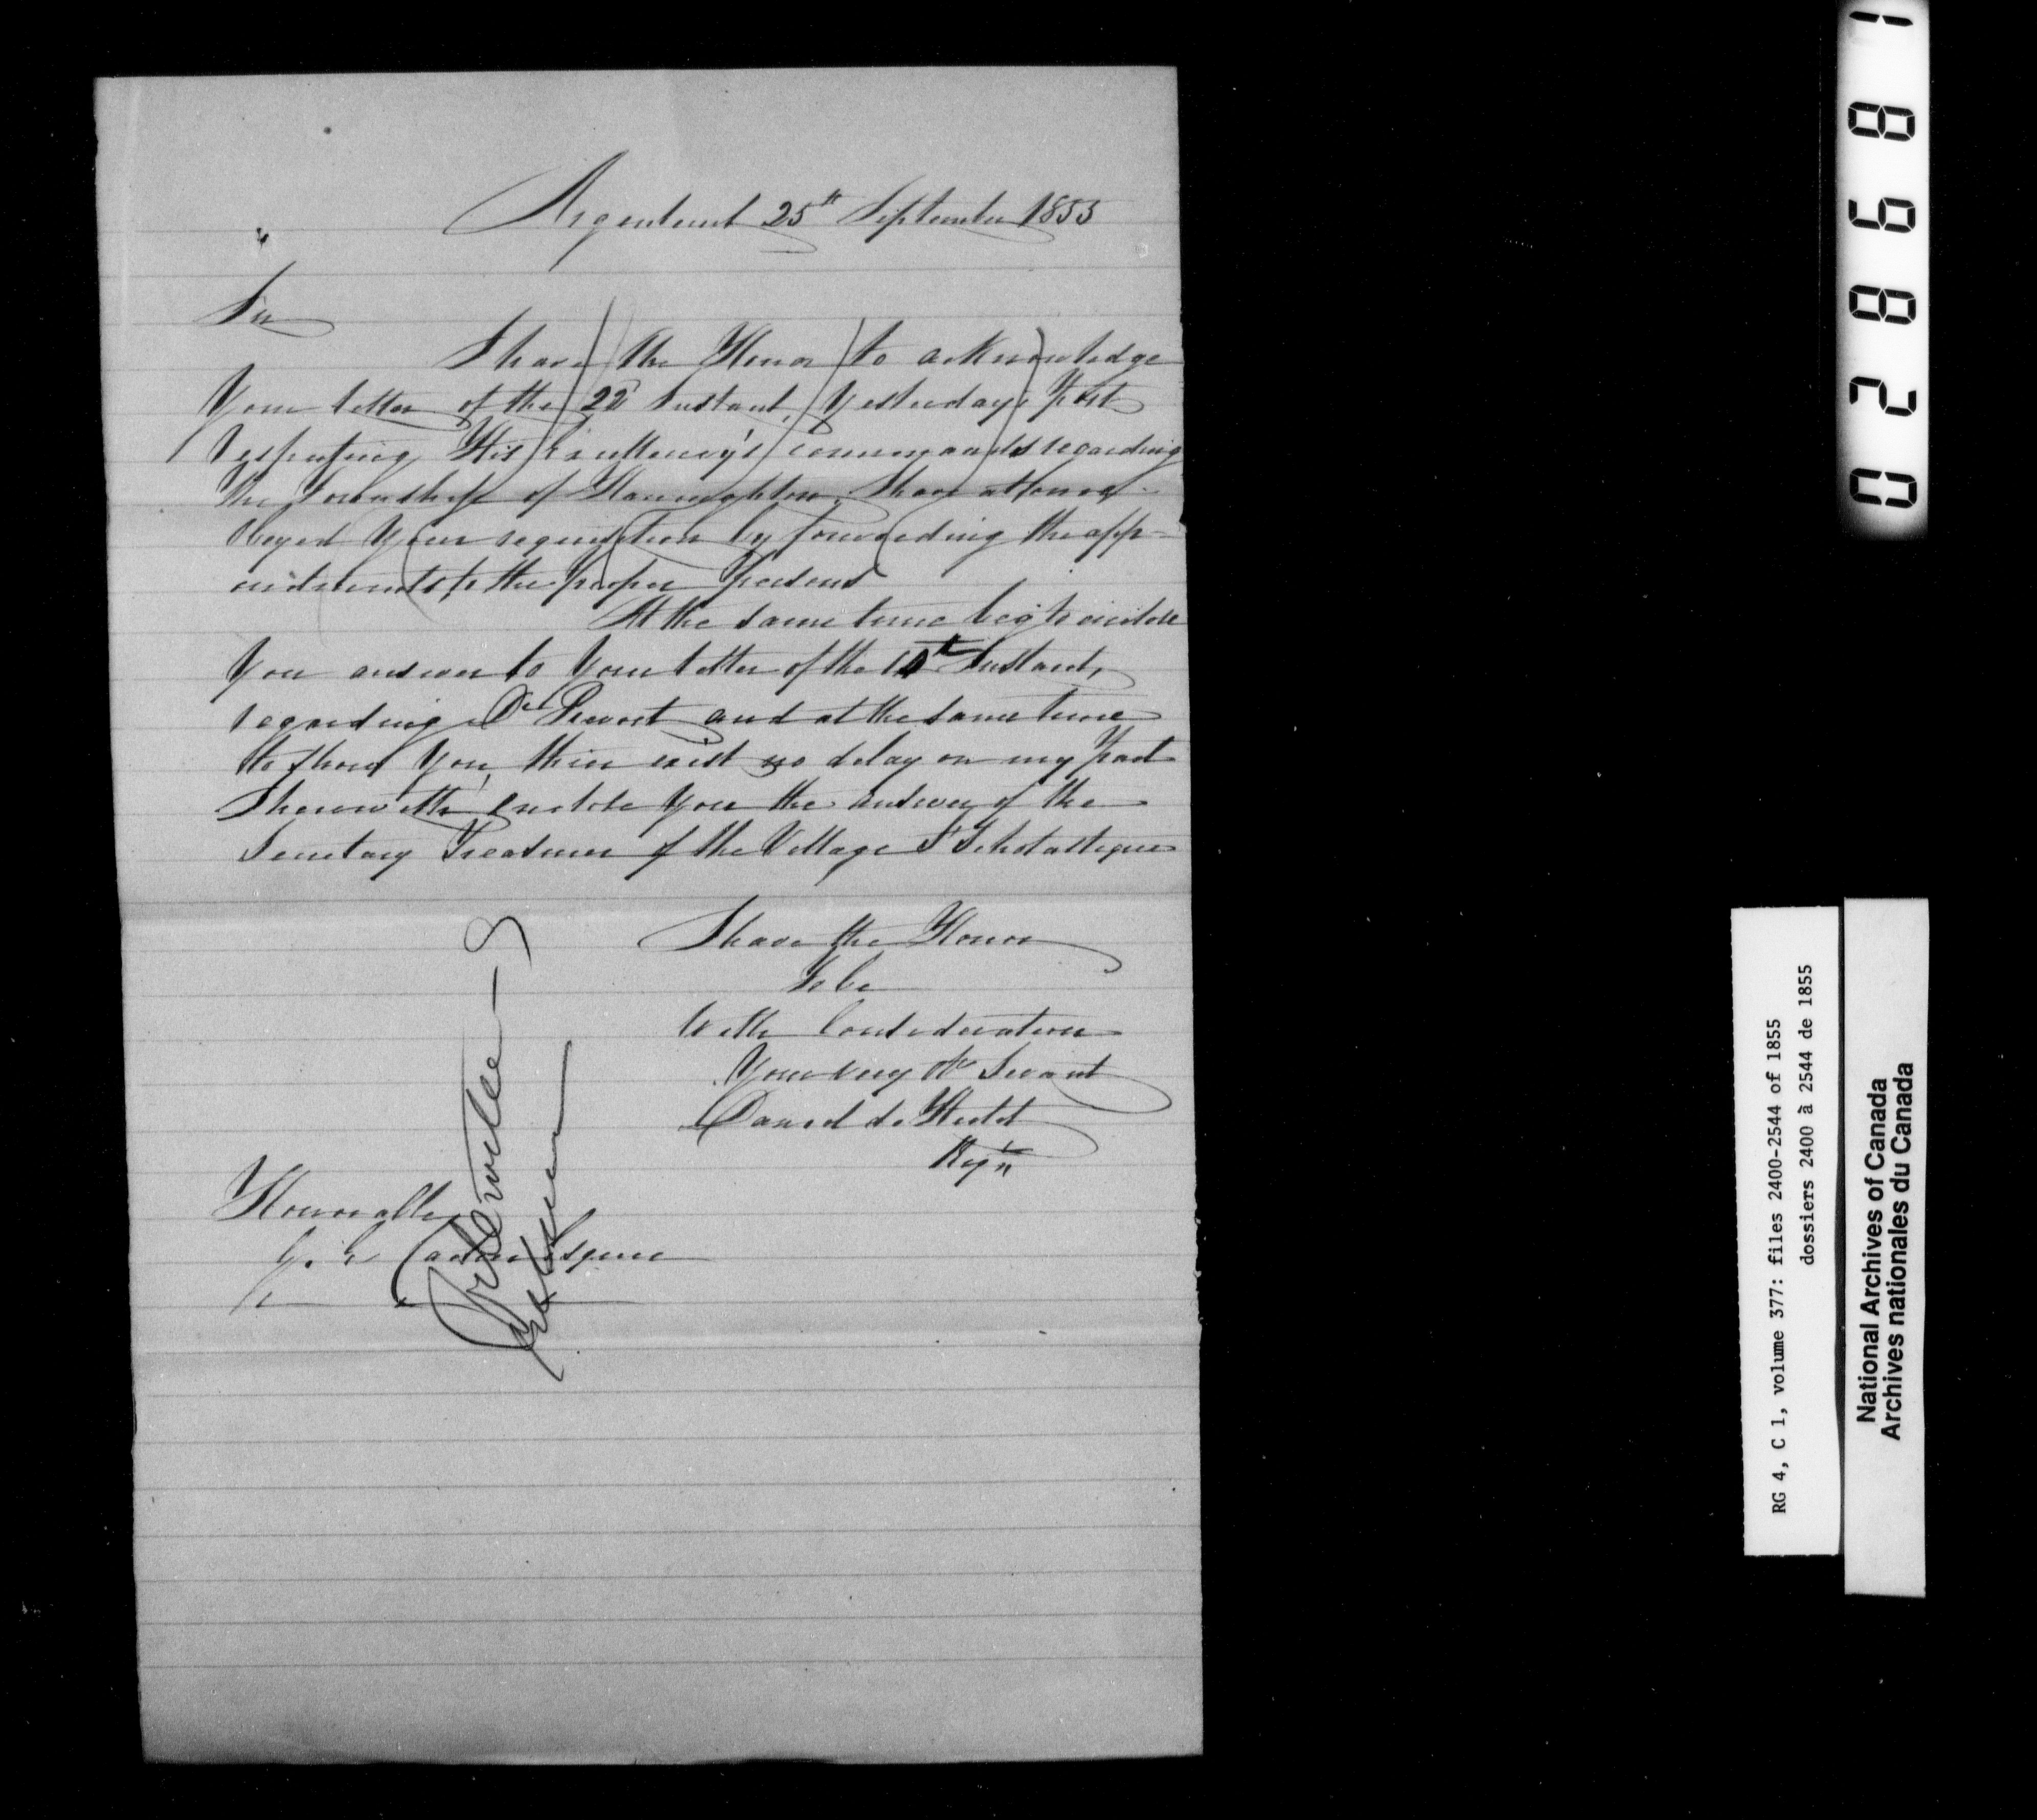 Argenteuil 25th September 1855
Sir
I have the Honor to acknowledge
Your letter of the 22d Instant, Yesterdays Post
respecting His Excellency's commands regarding
the Township of Harrington. I have at once
obeyed Your requisition by forwarding the app-
ointments to the proper Persons
At the same time beg to enclose
You answer to Your letter of the 10th Instant,
regarding Dr Prevost and at the same time
to show You, their exist no delay on my Part
I herewith enclose You the answer of the
Secretary Treasurer of the Village St Scholastique
I have the Honor
to be
With Consideration
Your very Ob Servant
Daniel de Hertel
Regr
Honorable
G. E. Cartier Esquire
Grenville
RG 4, C 1, volume 377: files 2400-2544 of 1855
dossiers 2400 à 2544 de 1855
National Archives of Canada
Archives nationales du Canada
028681